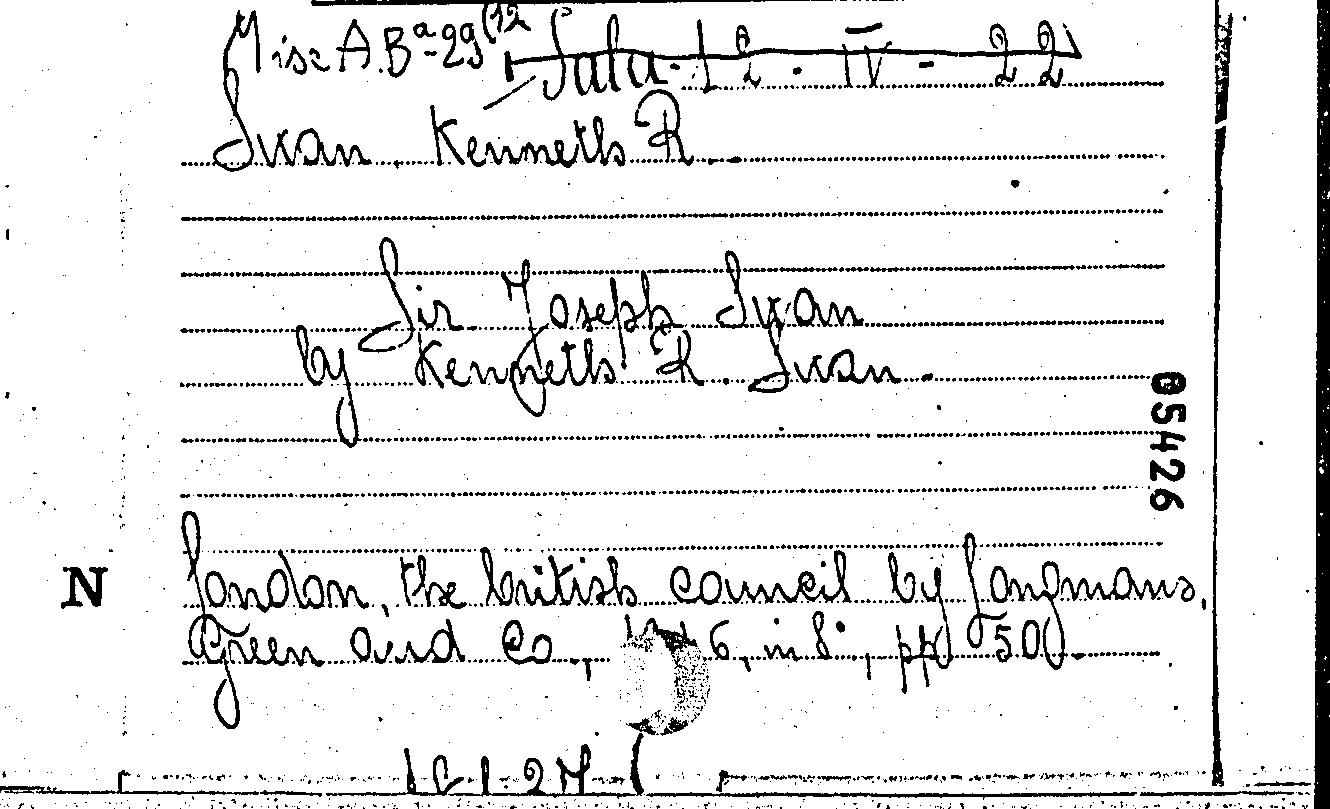 Misc A.Bª-29(12
Sala 12 - IV - 22
Swan Kenneth R.
Sir Joseph Swan
by Kenneth R. Swan.
05426
N
London, the british council by Longmans,
Green and Co., 6, in 8°, pp 50.